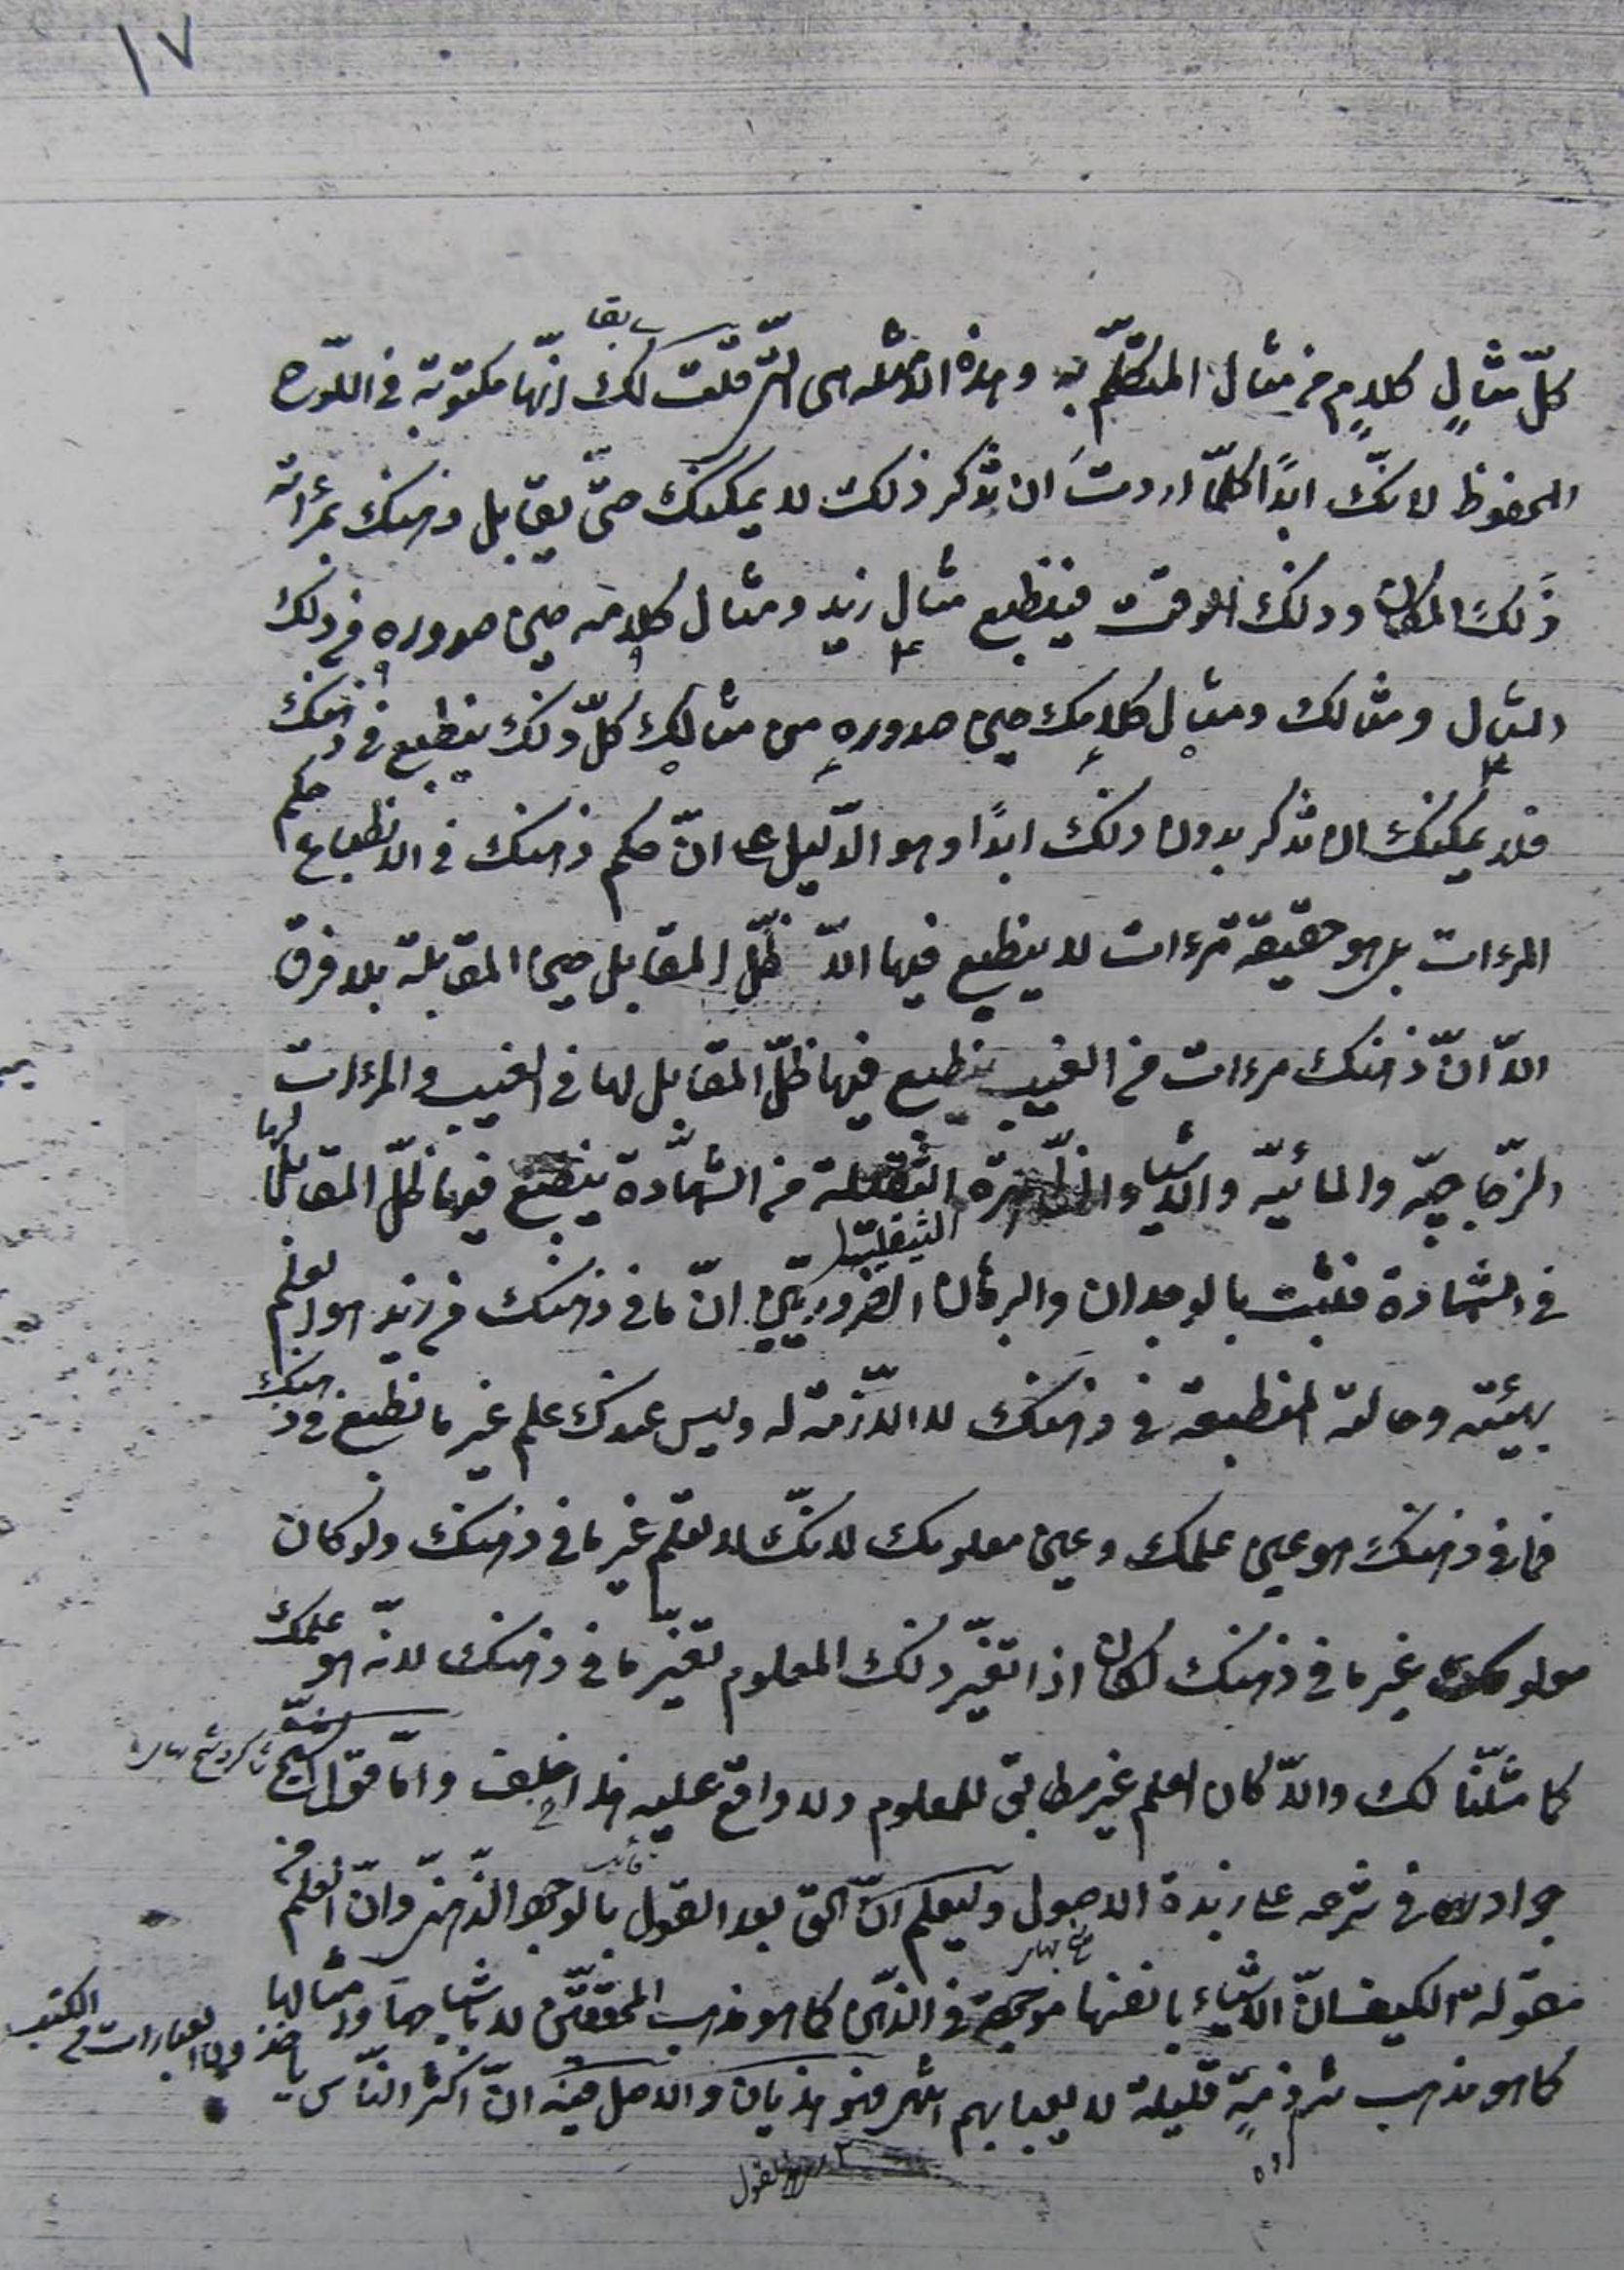 ١٧
سابقا
كلّ مثالٍ كلامٍ من مثال المتكلّم به وهذه الامثله هى الّتى قلت لك انّها مكتوبة فى اللّوح
المحفوظ لانّك ابدًا كلّما اردتَ ان تذكر ذلك لا يمكنك حتّى يقابل ذهنك بمرأته
ذلك المكان وذلك الوقت فينطبع مثال زيد ومثال كلامه حين صدوره من ذلك
المثال ومثالك ومثال كلامك حين صدوره من مثالك كلّ ذلك ينطبع فى ذهنك
فلا يمكنك ان تذكر بدون ذلك ابدًا وهو الدّليل على انّ حكم ذهنك فى الانطباع حكم
المرءات بل هو حقيقة مرءات لا ينطبع فيها الّا ظلّ المقابل حين المقابلة بلا فرق
الّا انّ ذهنك مرءات من الغيب ينطبع فيها ظلّ المقابل لها فى الغيب والمرءات
الزّجاجيّه والمائيّه والاشياء الظّاهرة الثقيلة من الشّهادة ينطبع فيها ظلّ المقابل لها
الثقيلة
فى الشّهادة فثبت بالوجدان والبرهان الضروريّين انّ ما فى ذهنك من زيد هو العلم
بهيئته وحالته المنطبعة فى ذهنك لا اللّازمة له وليس عندك علم غير ما نطبع فى ذهنك
فما فى ذهنك هو عين علمك وعين معلومك لانّك لا تعلم غير ما فى ذهنك ولو كان
معلومك غير ما فى ذهنك لكان اذا تغيّر ذلك المعلوم تغيّر ما فى ذهنك لانّه هو علمك
كما مثّلنا لك والّا كان العلم غير مطابق للمعلوم ولا واقع عليه هذا خلف وامّا قول الشيخ
جواد فى شرحه على زبدة الاصول وليعلم انّ الحق بعد القول بالوجود الذّهنى وانّ العلم من
مقولة الكيف انّ الاشياء بانفسها موجودة فى الذّهن كما هو مذهب المحقّقين لا باشباحها وامثالها
كما هو مذهب شرذمةٍ قليلة لا يعبا بهم انتهى فهو هذيان والاصل فيه انّ اكثر النّاس ياخذون العبارات من الكتب